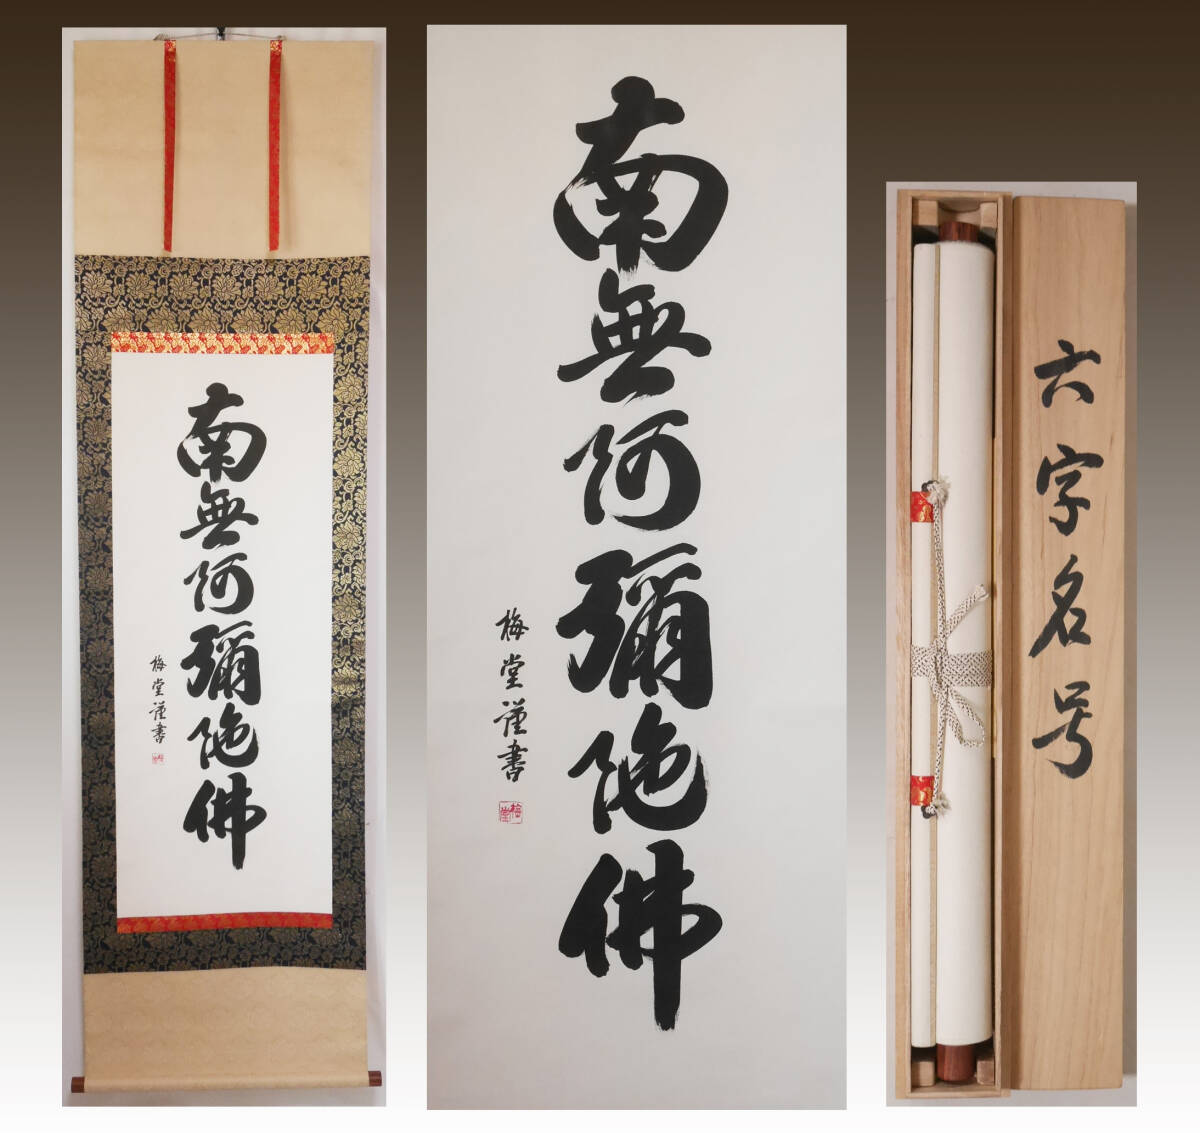 南無阿彌陀佛
梅堂謹書
南無阿彌陀佛
梅堂謹書
梅堂
六字名号